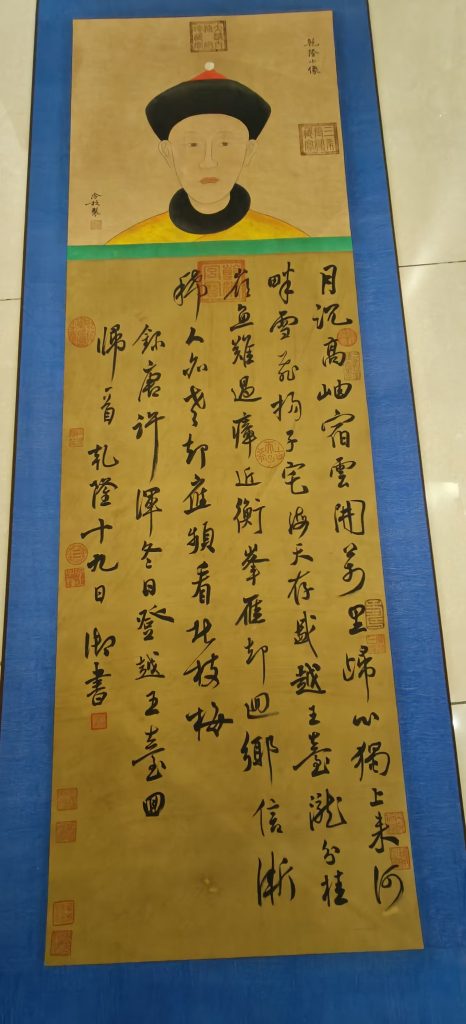 乾隆小像
冷枚製
月沉高岫宿雲開萬里歸心獨上来河
畔雪飛揚子宅海天存盛越王臺瀧分桂
嶺魚難過瘴近衡峯雁却迴鄉信漸
稀人亦老却應頻看北枝梅
錄唐許渾冬日登越王臺回
歸一首 乾隆十九日 御書